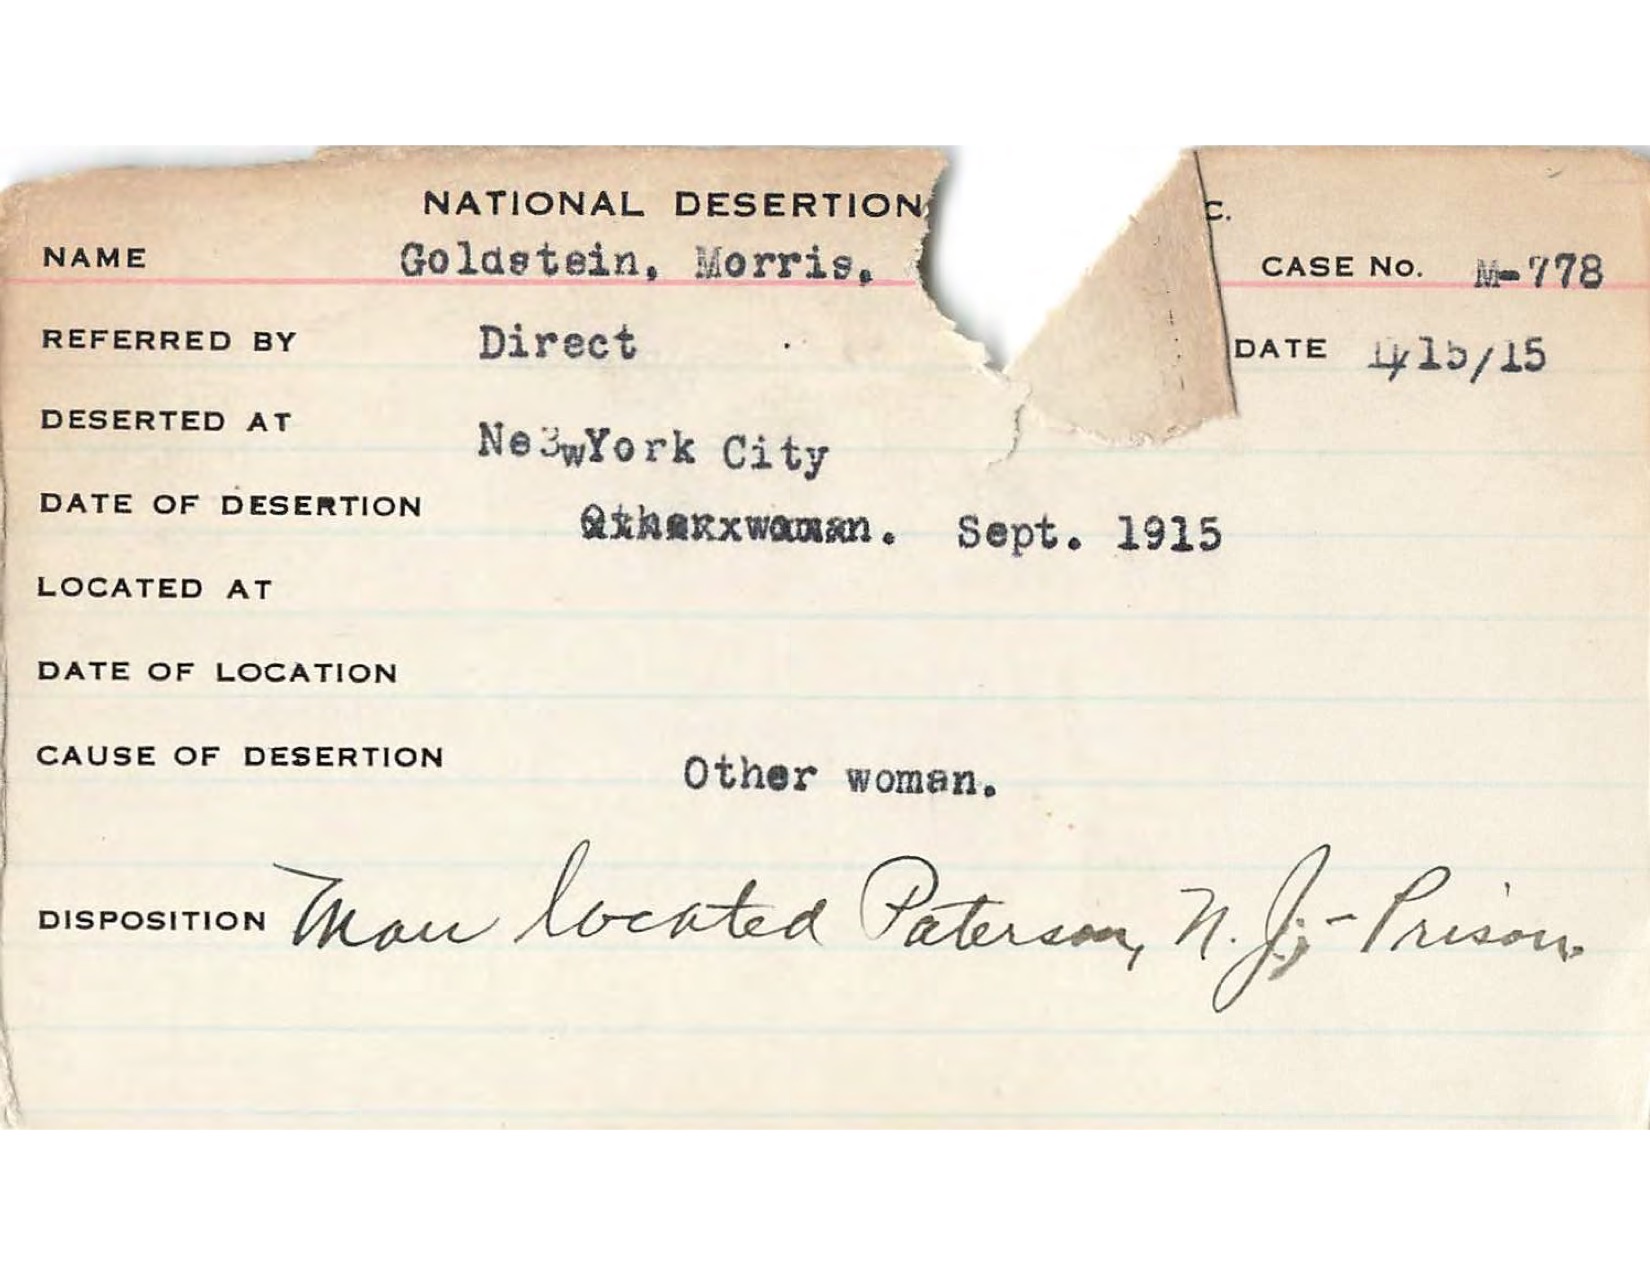 NATIONAL DESERTION C.
NAME Goldstein, Morris. CASE No. M-778
REFERRED BY Direct DATE 4/15/15
DESERTED AT New York City
DATE OF DESERTION Other woman. Sept. 1915
LOCATED AT
DATE OF LOCATION
CAUSE OF DESERTION Other woman.
DISPOSITION Man located Paterson, N. J; - Prison.